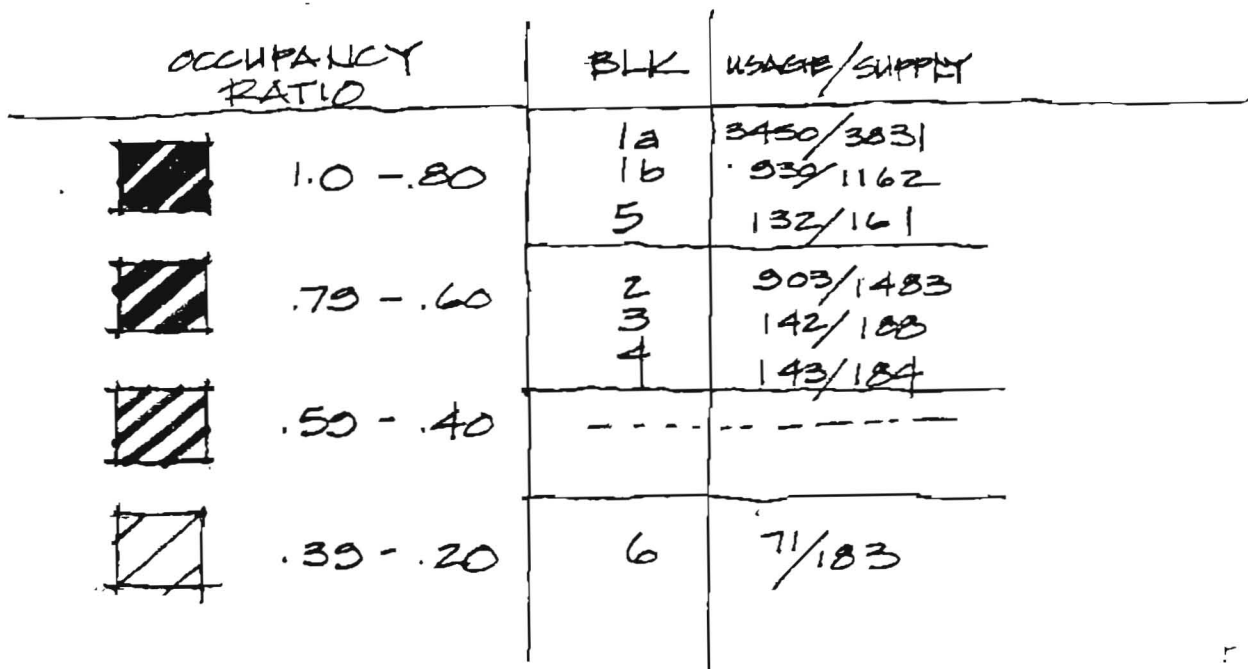 OCCUPANCY RATIO
BLK
USAGE/SUPPLY
1.0 - .80
1a 3450/3831
1b 930/1162
5 132/161
.79 - .60
2 903/1483
3 142/188
4 143/184
.59 - .40
.39 - .20
6 71/183